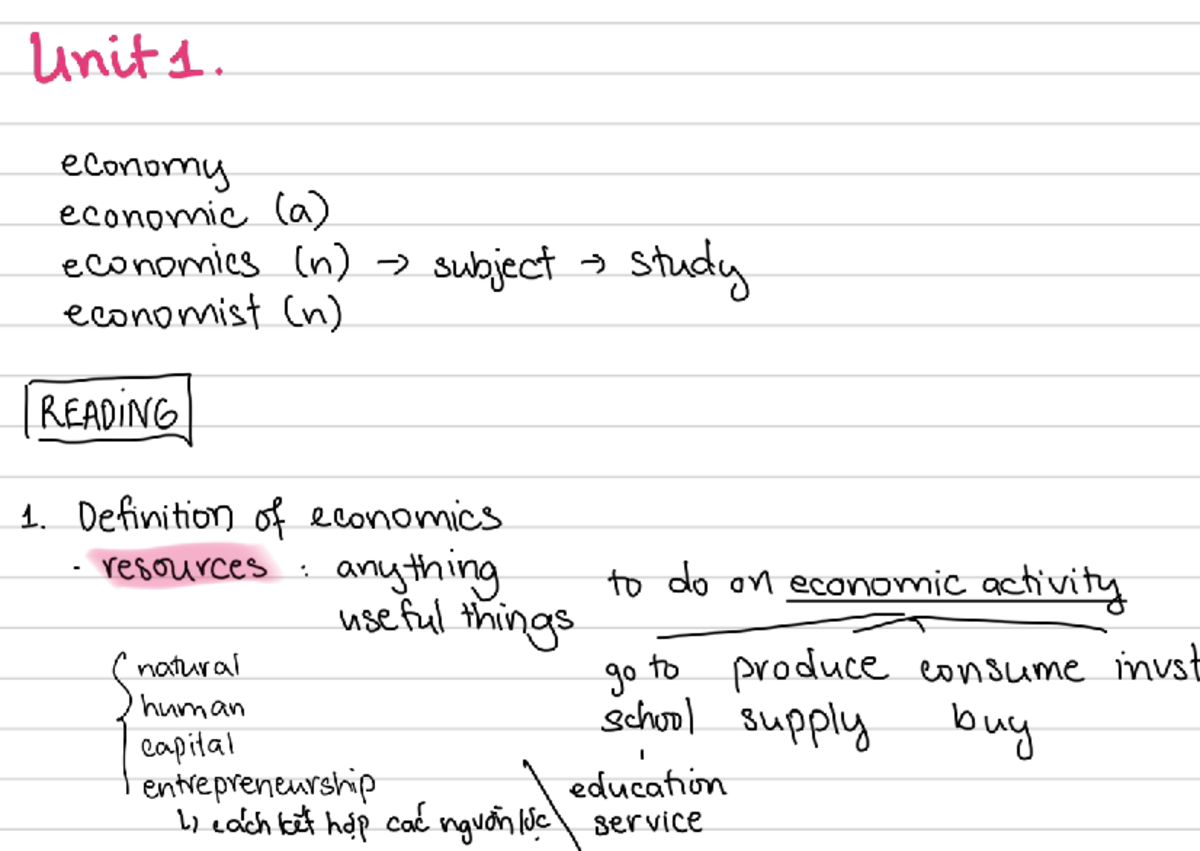 Unit 1.
economy
economic (a)
economics (n) → subject → study
economist (n)
READING
1. Definition of economics
· resources : anything
useful things
to do an economic activity
natural
human
capital
entrepreneurship
↳ cách kết hợp các nguồn lực
go to produce consume invst
school supply buy
education
service